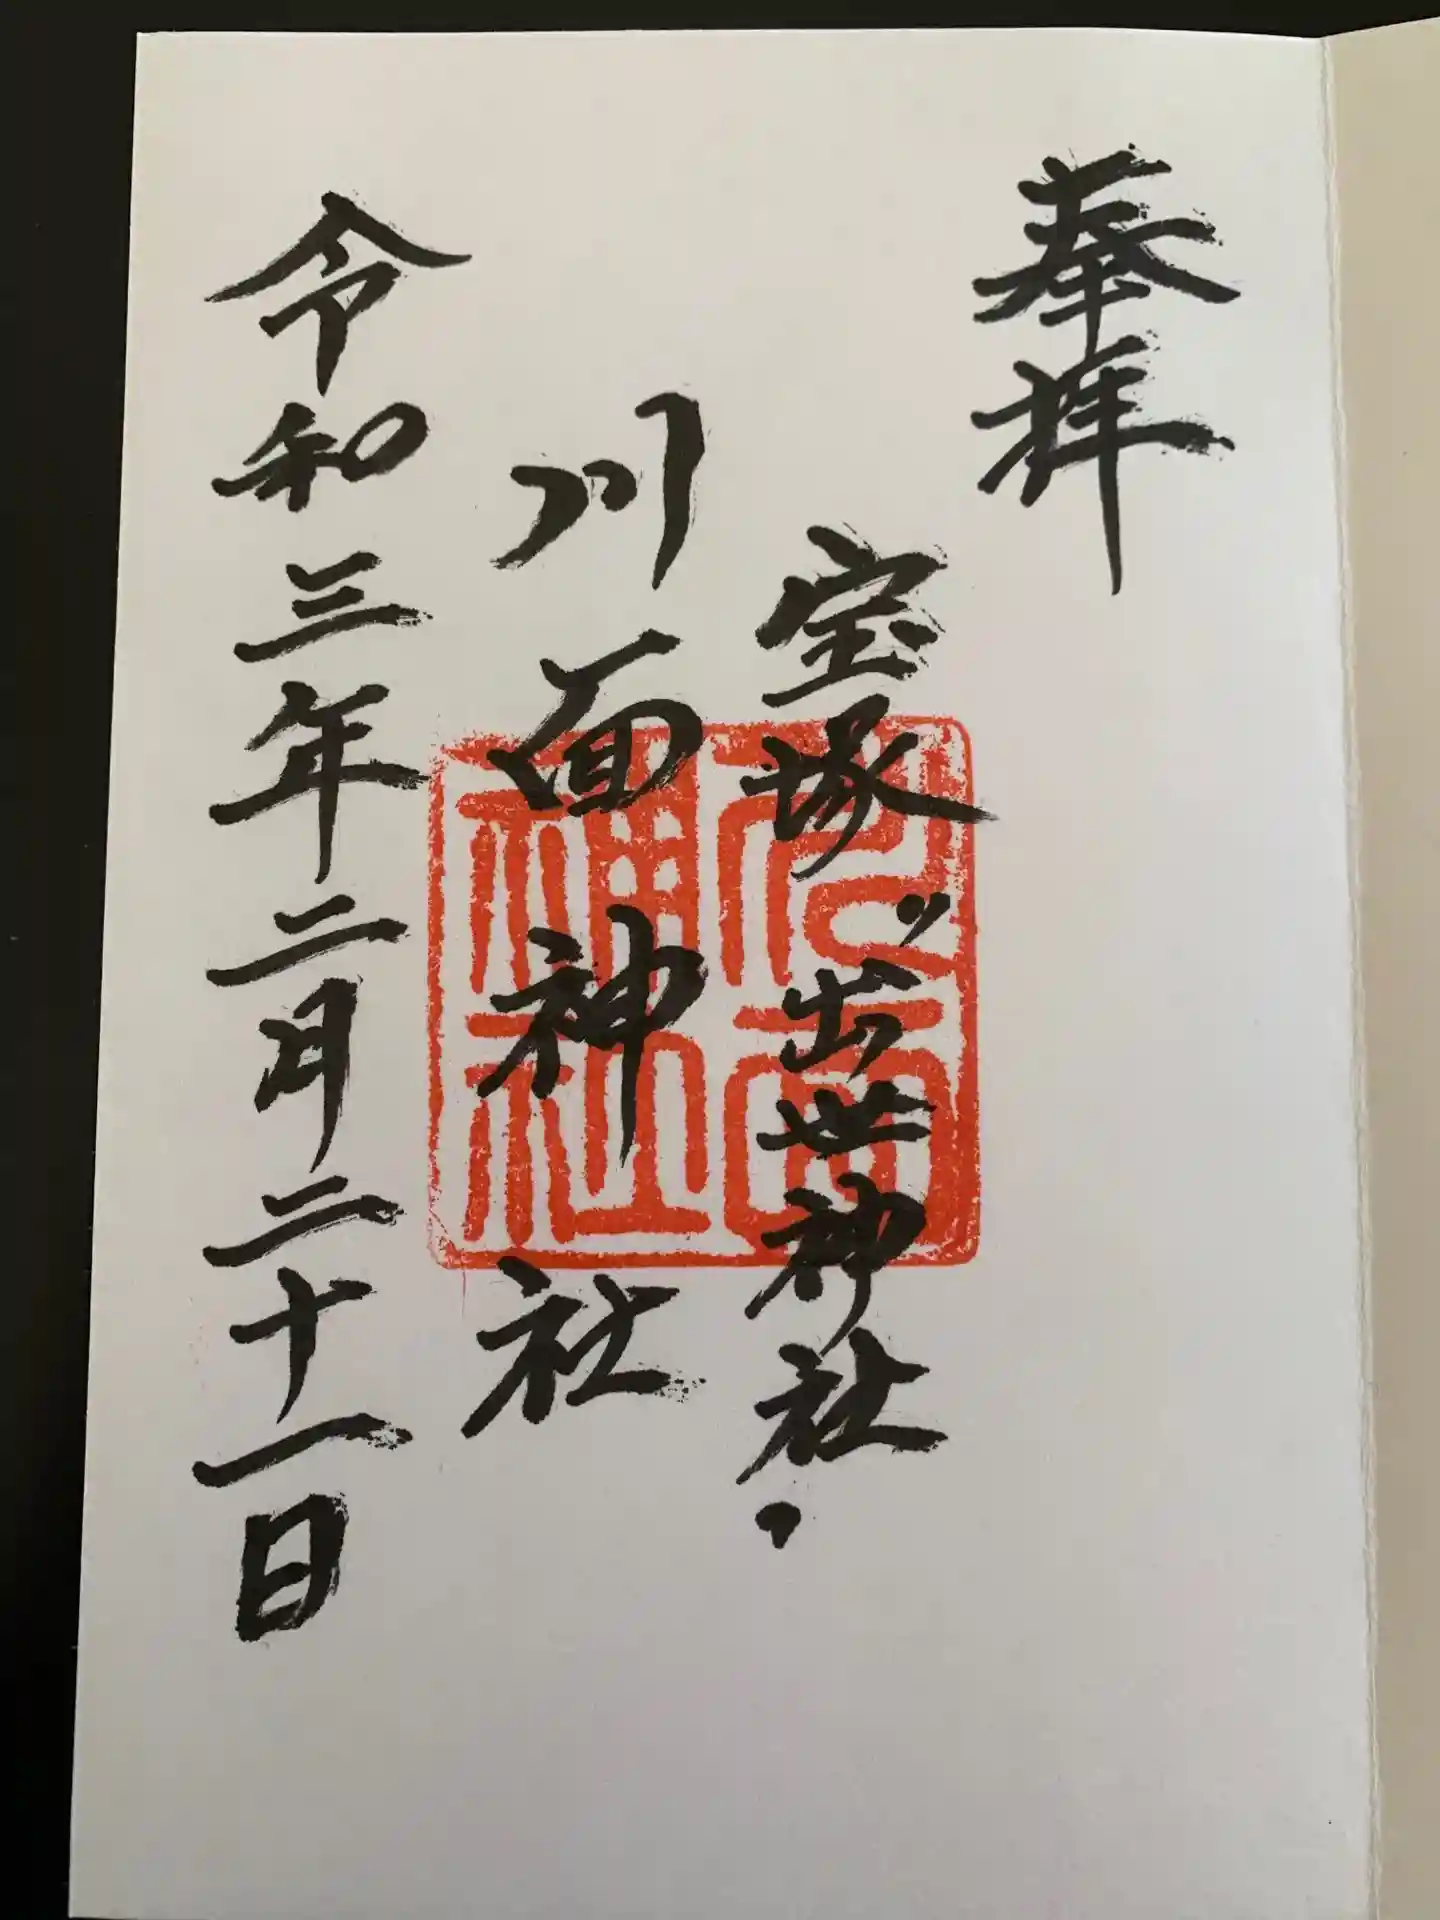 奉拝
宝塚〃出世神社・
川面神社
令和三年二月二十一日
川面神社